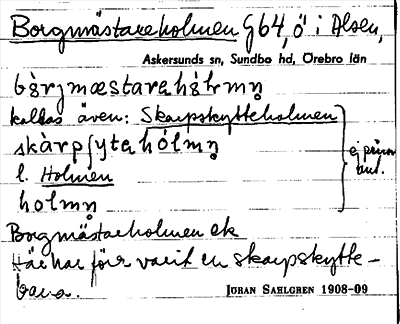 Borgmästareholmen Gb4, ö i Alsen,
Askersunds sn, Sundbo hd, Örebro län
bòrjmæstarahòlmn̥
kallas även: Skarpskytteholmen
skàrpʃytahólmn̥
l. Holmen
hólmn̥
Borgmästareholmen ek
Här har förr varit en skarpskytte-
bana.
JÖRAN SAHLGREN 1908-09